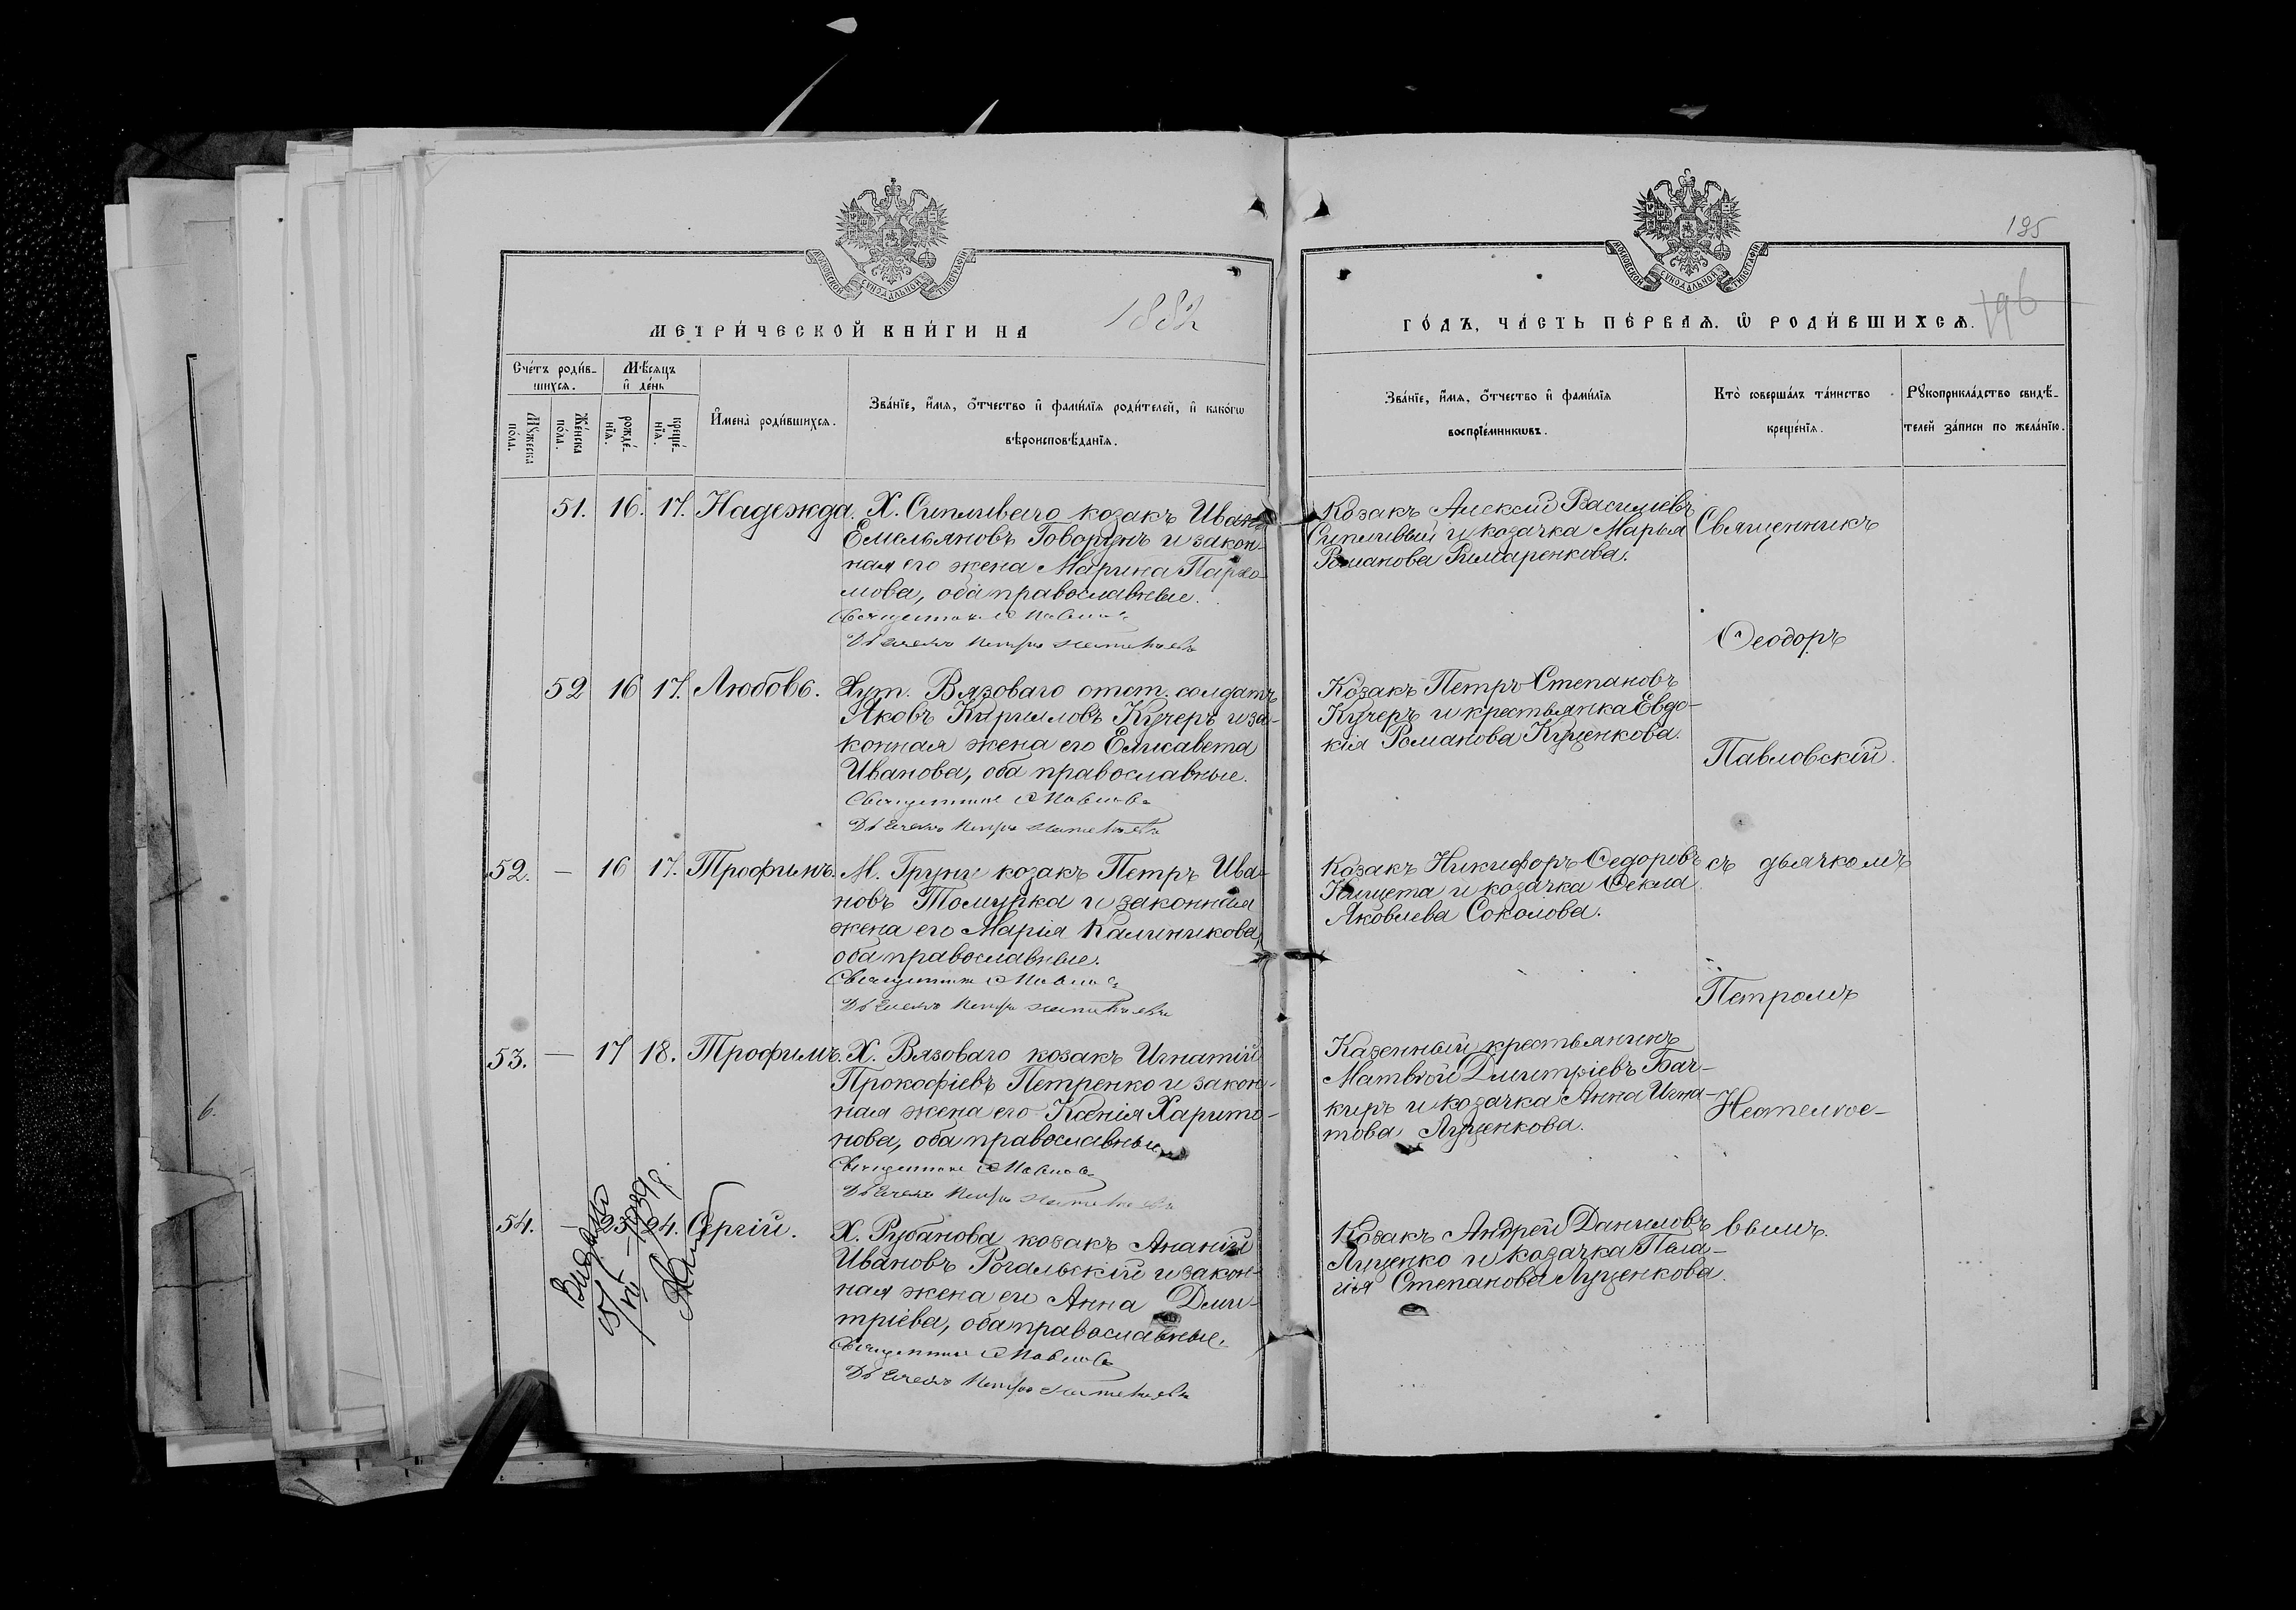 195
196
МОСКОВСКОЙ СѴНОДАЛЬНОЙ ТИПОГРАФІИ
МОСКОВСКОЙ СѴНОДАЛЬНОЙ ТИПОГРАФІИ
МЕТРИ́ЧЕСКОЙ КНИ́ГИ НА 1882
ГО́ДЪ, ЧА́СТЬ ПЕ́РВАѦ, Ѡ҆ РОДИ́ВШИХСѦ.
Сче́тъ роди́в-
шихсѧ.
Мꙋ́жеска
по́ла.
Же́нска
по́ла.
Мѣ́сѧцъ
и҆ де́нь
рожде́-
нїѧ.
креще́-
нїѧ.
И҆мена̀ роди́вшихсѧ.
Зва́нїе, и҆́мѧ, ѻ҆́тчество и҆ фами́лїѧ роди́телей, и҆ како́гѡ
вѣроисповѣ́данїѧ.
Зва́нїе, и҆́мѧ, ѻ҆́тчество и҆ фами́лїѧ
воспрїе́мникѡвъ.
Кто̀ соверша́лъ та́инство
креще́нїѧ.
Рꙋкоприкла́дство свидѣ́-
телей за́писи по жела́нїю.
51. 16. 17. Надежда. Х. Сипливаго козакъ Иванъ
Емельяновъ Говорунъ и закон-
ная его жена Марина Пархо-
мова, оба православные.
Козакъ Алексій Василіевъ
Сипливый и козачка Марья
Романова Римаренкова.
Священникъ
Ѳеодоръ
52 16 17. Любовь. Хут. Вязоваго отст. солдатъ
Яковъ Кирилловъ Кучеръ и за-
конная жена его Елисавета
Иванова, оба православные.
Козакъ Петръ Степановъ
Кучеръ и крестьянка Евдо-
кія Романова Куценкова.
Павловскій.
52. — 16 17. Трофимъ. М. Груни козакъ Петръ Ива-
новъ Томурка и законная
жена его Марія Калиникова,
оба православные.
Козакъ Никифоръ Ѳедоровъ
Кищета и козачка Ѳекла
Яковлева Соколова.
съ дьячкомъ
Петромъ
53. — 17 18. Трофимъ. Х. Вязоваго козакъ Игнатій
Прокофіевъ Петренко и закон-
ная жена его Ксенія Харито-
нова, оба православные
Казенный крестьянинъ
Матвѣй Димитріевъ Бач-
киръ и козачка Анна Игна-
това Луценкова.
54. — 23 24. Сергій. Х. Рубанова козакъ Ананій
Ивановъ Рогальскій и закон-
ная жена его Анна Дми-
тріева, оба православные.
Козакъ Андрей Даниловъ
Луценко и козачка Пела-
гія Степанова Луценкова.
вымъ.
6.